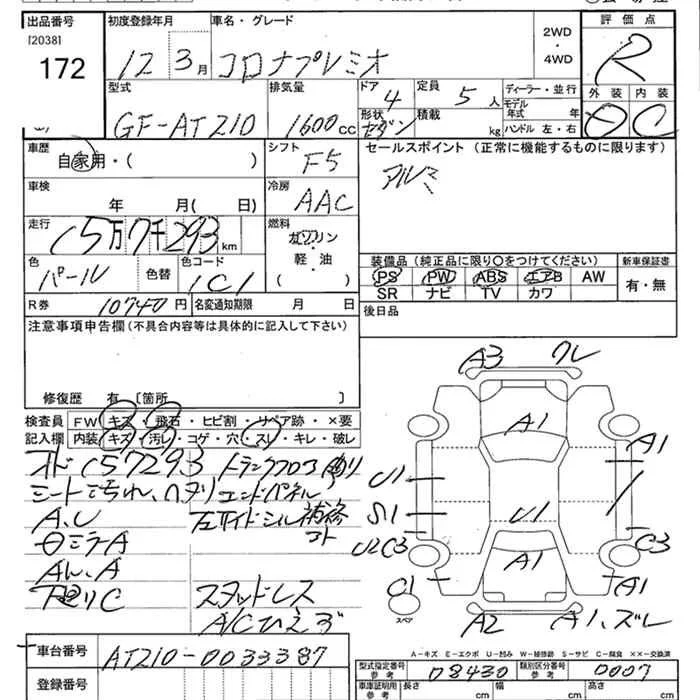 出品番号
[2038]
172
初度登録年月
12 3月
車名・グレード
コロナプレミオ
2WD
・
4WD
評価点
R
型式
GF-AT210
排気量
1600cc
ドア
4
定員
5人
ディーラー・並行
形状
セダン
積載
kg
モデル年式 年
ハンドル 左・右
外装 内装
D C
車歴
自家用・( )
シフト
F5
セールスポイント(正常に機能するものに限ります)
アルミ
車検
年 月( 日)
冷房
AAC
走行
(5万7千293km
燃料
ガソリン
・
軽・油
( )
色
パール
色替
色コード
1C1
装備品(純正品に限り○をつけてください)
新車保証書
PS PW ABS エアB AW
SR ナビ TV カワ
有・無
R券 10740円
名変通知期限 月 日
後日品
注意事項申告欄(不具合内容等は具体的に記入して下さい)
修復歴 有 [箇所 ]
検査員
記入欄
FW キズ・飛石・ヒビ割・リペア跡・×要
内装 キズ・汚レ・コゲ・穴・スレ・キレ・破レ
オド(57293
シート汚れ、ヘタリ
A、U
トランクフロア
エンドパネル
左サイドシル補修
コト
スタッドレス
下廻りC
A3 ワレ
A1
A1
U1
S1
U1
U2C3
C3
A1
A1
C1
スペア
A2
A1、ズレ
A-キズ E-エクボ U-凹み W-補修跡 S-サビ C-腐食 ××-交換済
車台番号
AT210-0033387
登録番号
型式指定番号
参考
08430
類別区分番号
参考
0007
車庫証明用
参考
長さ cm
幅 cm
高さ cm